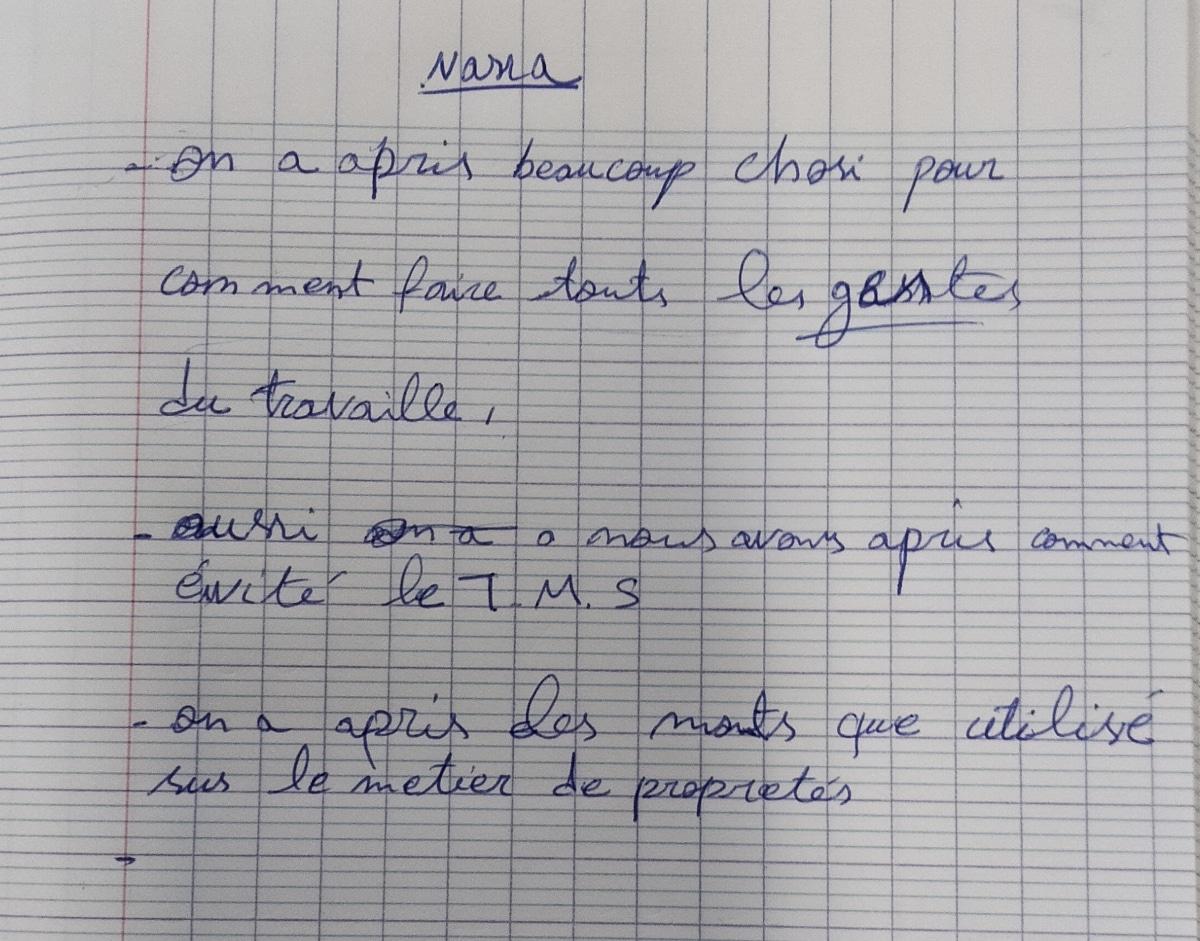 Nana
- on a apris beaucoup chosi pour
comment faire touts les gestes
du travaille,
- aussi on a nous avons apris comment
évité le T.M.S
- on a apris des mots que utilisé
sus le metier de propretés
-